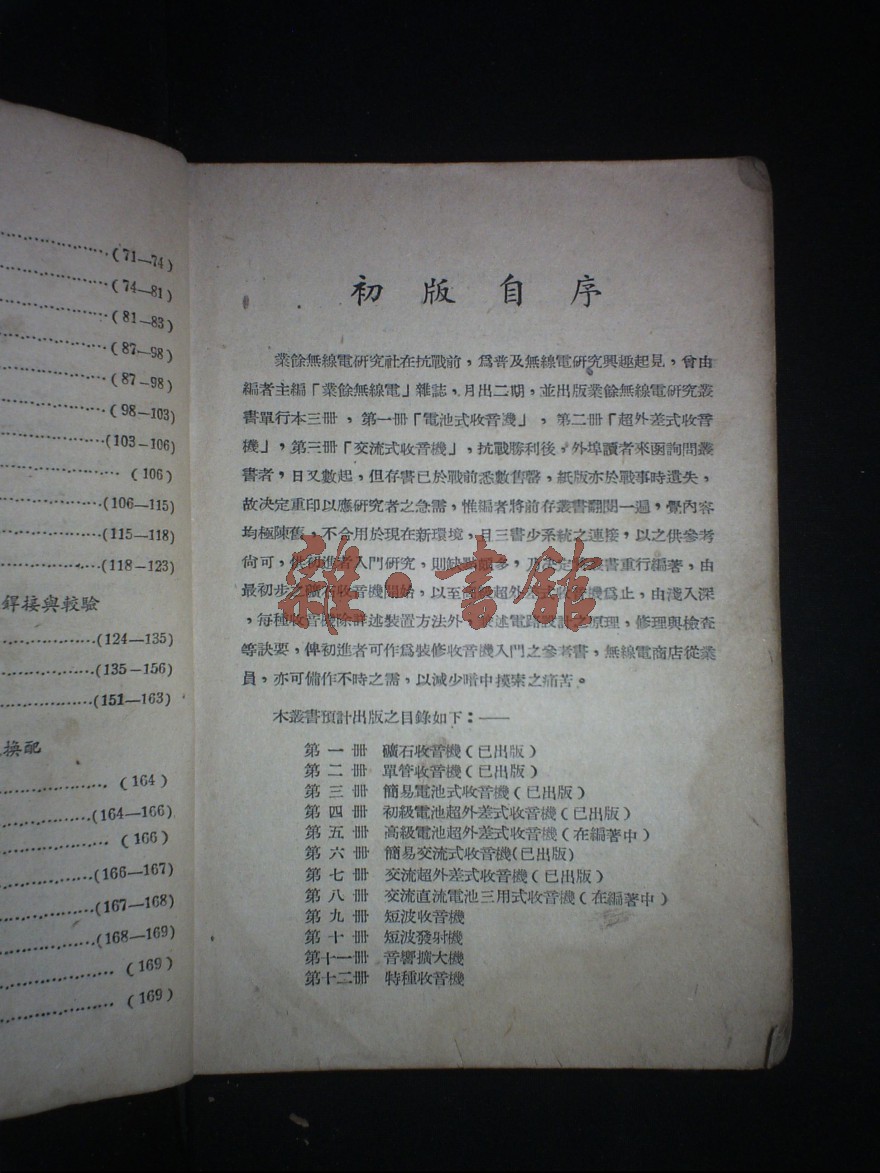 (71—74)
(74—81)
(81—83)
(87—98)
(87—98)
(98—103)
(103—106)
(106)
(106—115)
(115—118)
(118—123)
銲接與較驗
(124—135)
(135—156)
(151—163)
換配
(164)
(164—166)
(166)
(166—167)
(167—168)
(168—169)
(169)
(169)
初版自序
業餘無線電研究社在抗戰前，爲普及無線電研究興趣起見，曾由
編者主編「業餘無線電」雜誌，月出二期，並出版業餘無線電研究叢
書單行本三冊，第一冊「電池式收音機」，第二冊「超外差式收音
機」，第三冊「交流式收音機」，抗戰勝利後，外埠讀者來函詢問叢
書者，日又數起，但存書已於戰前悉數售罄，紙版亦於戰事時遺失，
故决定重印以應研究者之急需，惟編者將前存叢書翻閱一遍，覺內容
均極陳舊，不合用於現在新環境，且三書少系統之連接，以之供參考
尙可，供初進者入門研究，則缺點頗多，乃决定將叢書重行編著，由
最初步之礦石收音機開始，以至高級超外差式收音機爲止，由淺入深
，每種收音機除詳述裝置方法外，述電路設計之原理，修理與檢查
等訣要，俾初進者可作爲裝修收音機入門之參考書，無線電商店從業
員，亦可備作不時之需，以減少暗中摸索之痛苦。
本叢書預計出版之目錄如下：——
第一冊 礦石收音機（已出版）
第二冊 單管收音機（已出版）
第三冊 簡易電池式收音機（已出版）
第四冊 初級電池超外差式收音機（已出版）
第五冊 高級電池超外差式收音機（在編著中）
第六冊 簡易交流式收音機(已出版)
第七冊 交流超外差式收音機（已出版）
第八冊 交流直流電池三用式收音機（在編著中）
第九冊 短波收音機
第十冊 短波發射機
第十一冊 音響擴大機
第十二冊 特種收音機
雜·書館